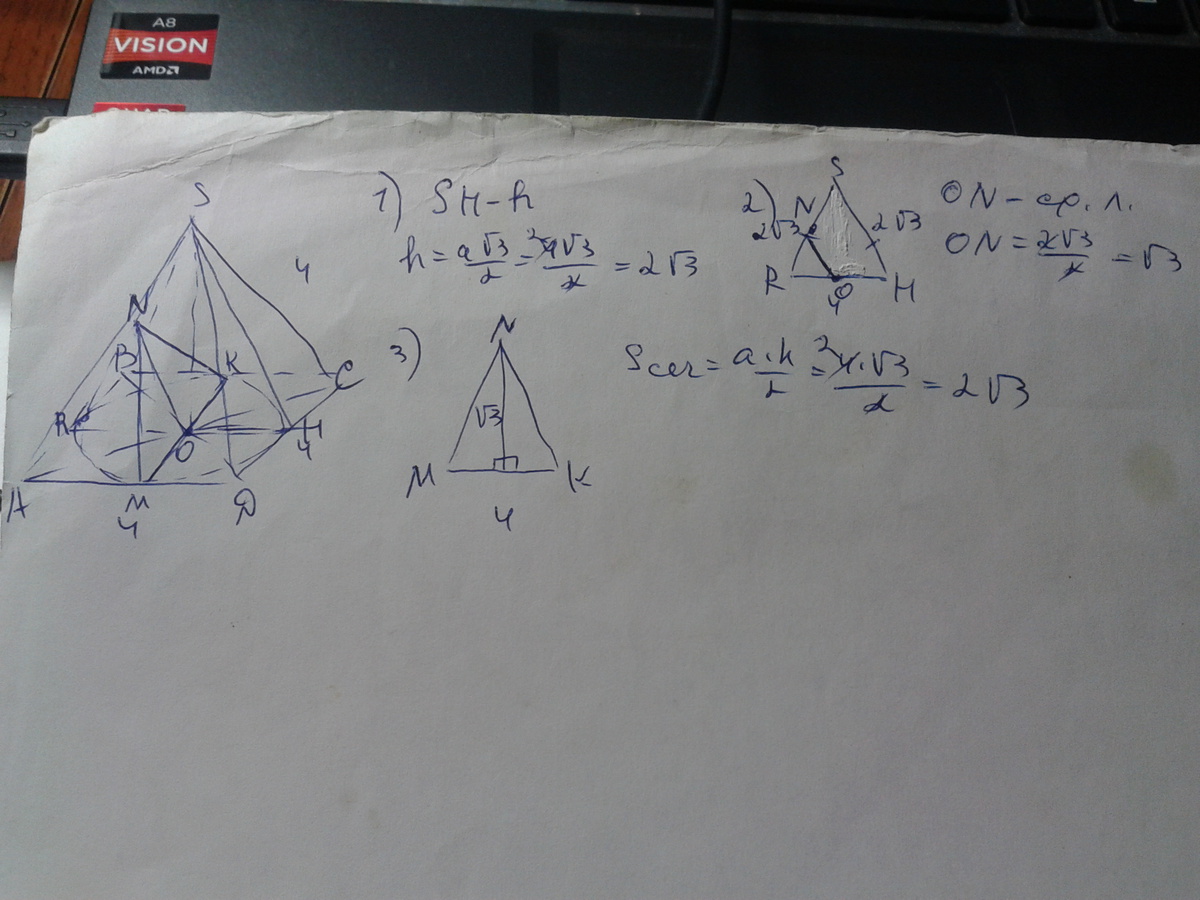 A8
VISION
AMD
S
4
N
B
K
C
R
O
H
4
A
M
D
4
1) SH - h
h = a√3/2 = 4√3/2 = 2√3
2) S
N
2√3
2√3
R
O
H
4
ON - ср. л.
ON = 2√3/2 = √3
3) N
√3
M
K
4
Sсеч = a·h/2 = 4·√3/2 = 2√3